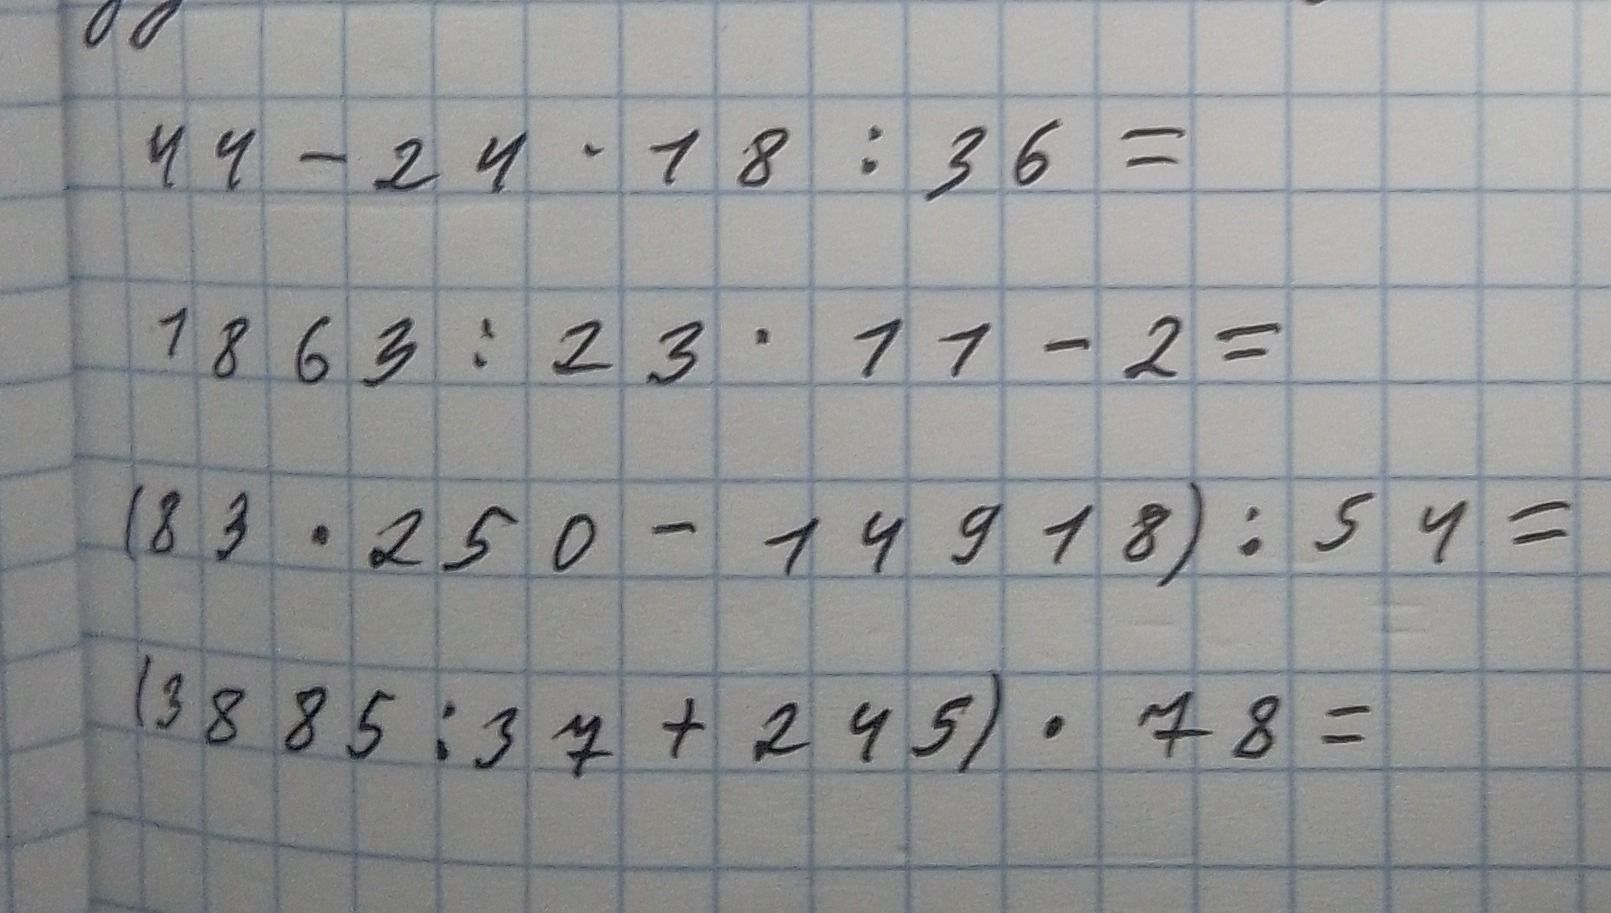 44 - 24 · 18 : 36 =
1863 : 23 · 11 - 2 =
(83 · 250 - 14918) : 54 =
(3885 : 37 + 245) · 78 =